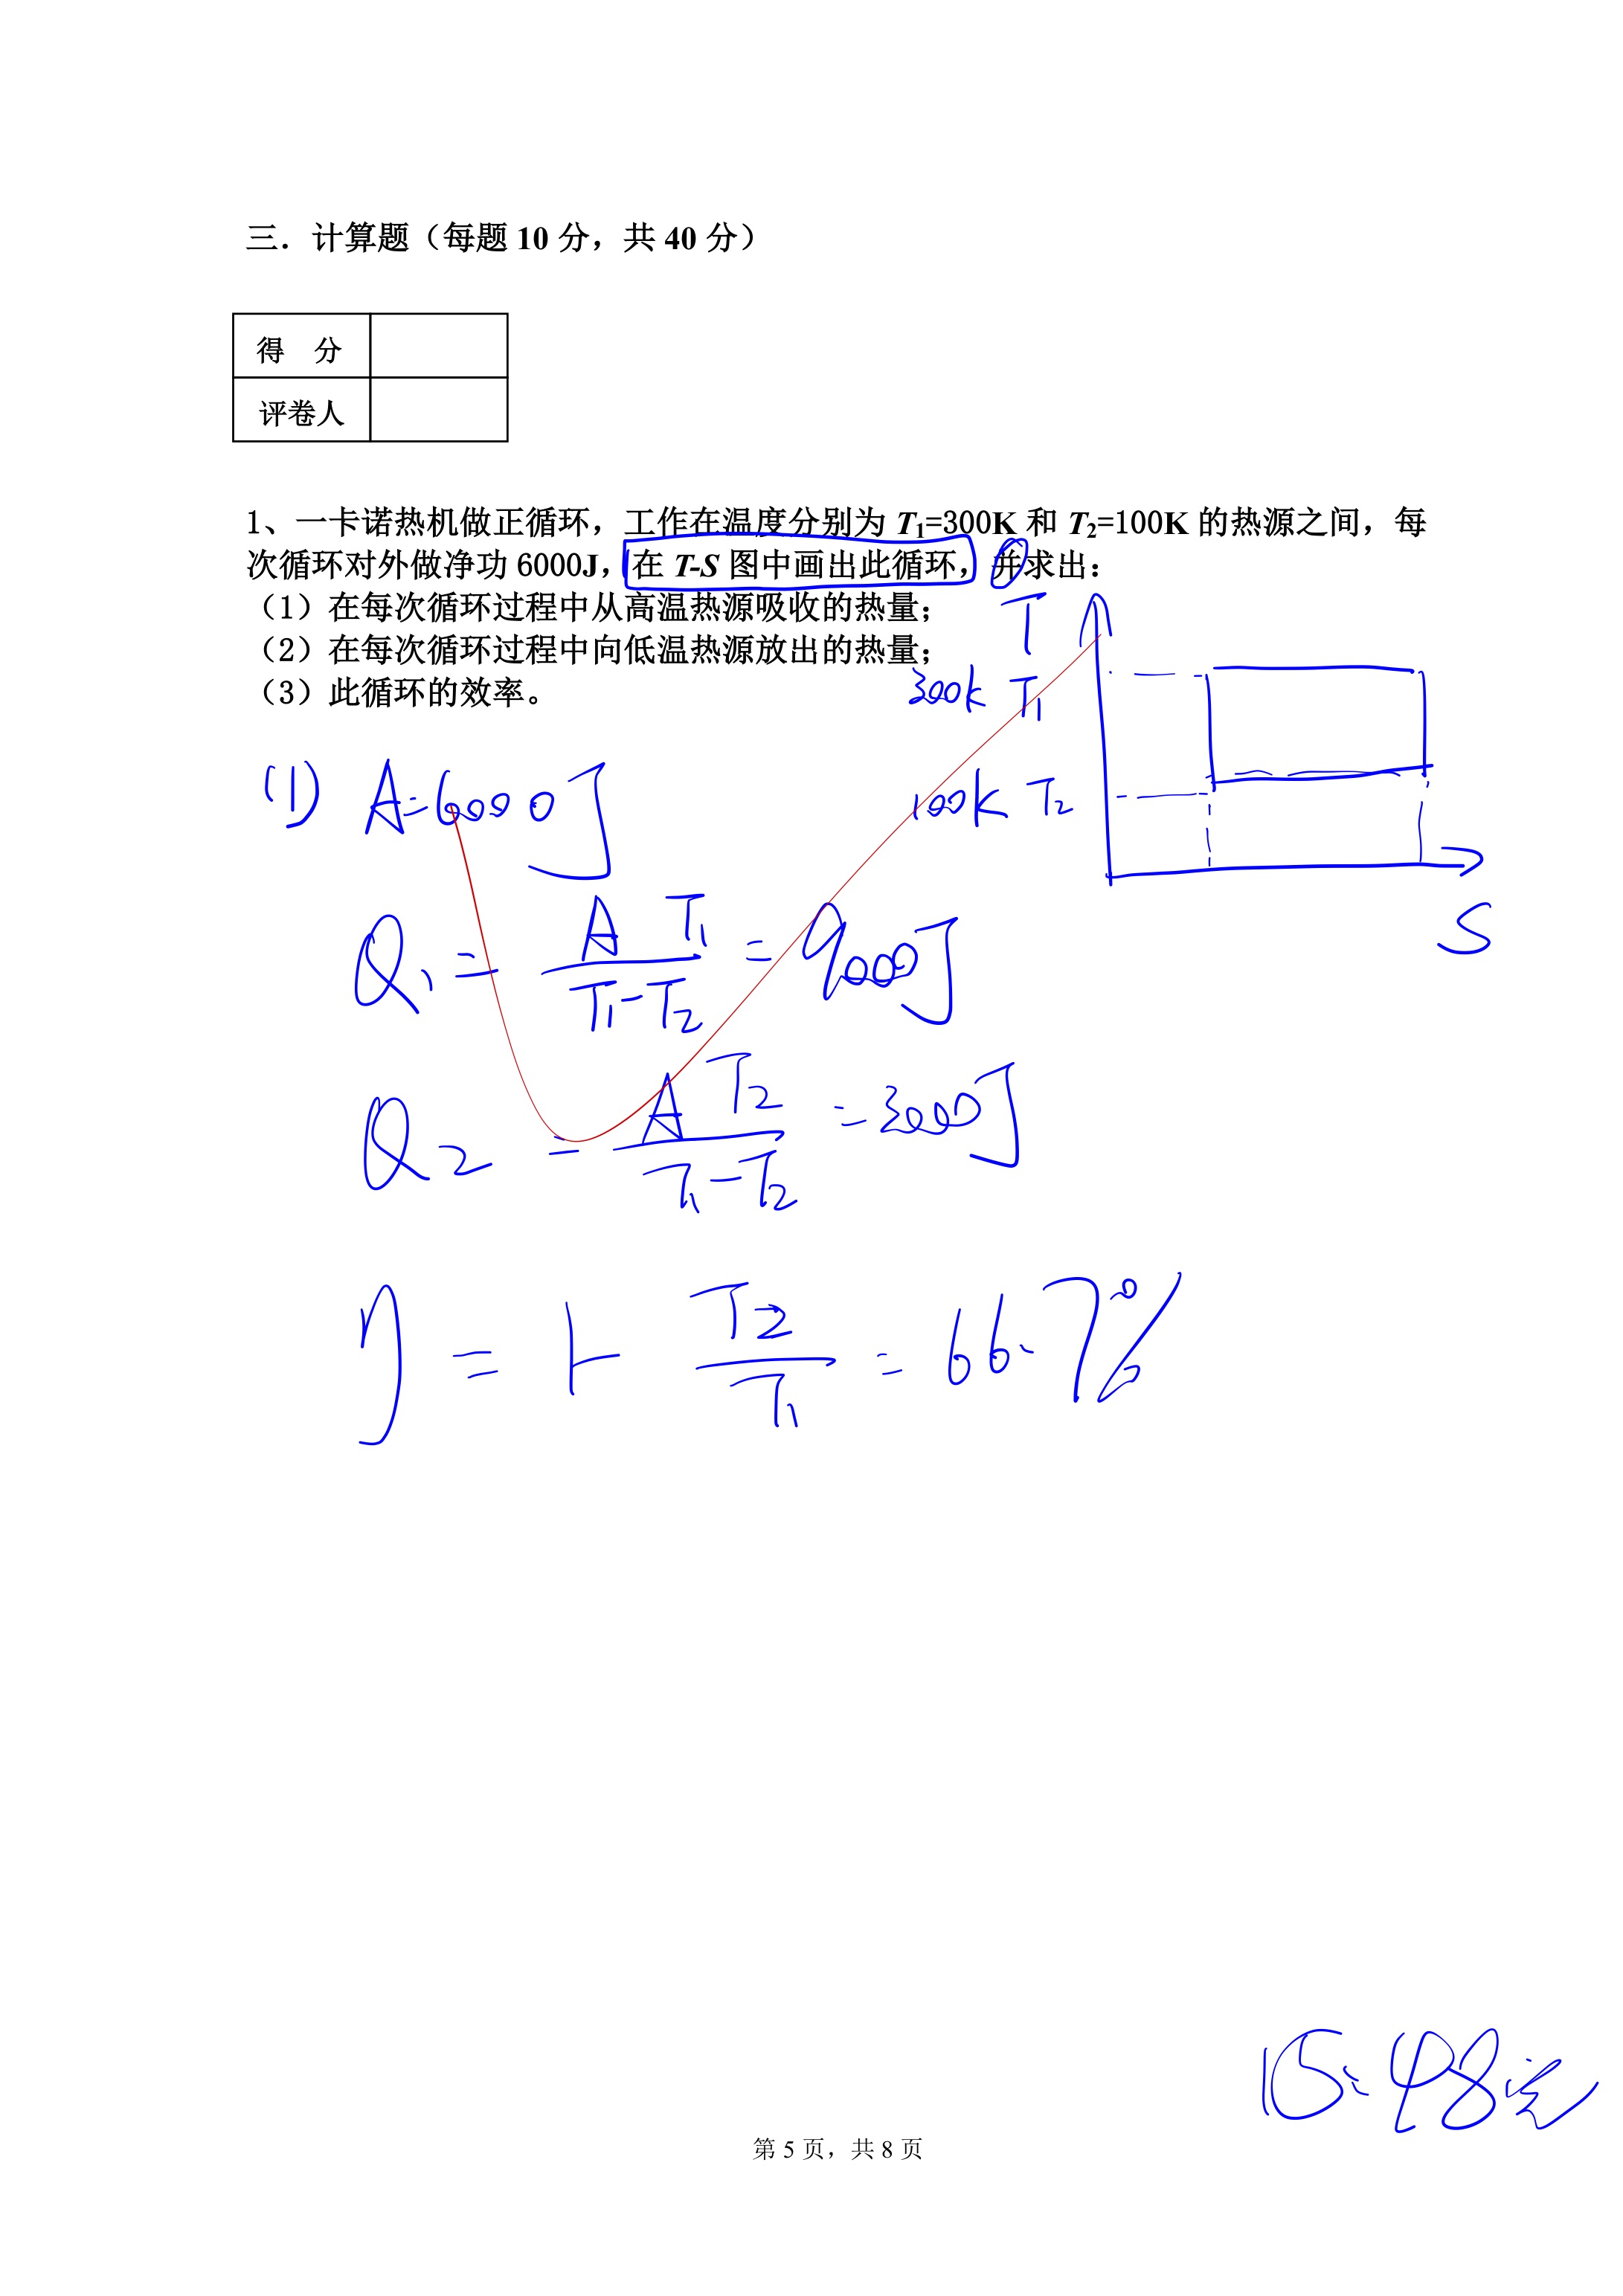 三．计算题（每题 10 分，共 40 分）
得 分
评卷人
1、一卡诺热机做正循环，工作在温度分别为 T₁=300K 和 T₂=100K 的热源之间，每
次循环对外做净功 6000J，在 T-S 图中画出此循环，并求出：
（1）在每次循环过程中从高温热源吸收的热量；
（2）在每次循环过程中向低温热源放出的热量；
（3）此循环的效率。
T
300k T₁
100k T₂
S
(1) A=6000J
Q₁ = A T₁ / T₁-T₂ = 9000J
Q₂ = A T₂ / T₁-T₂ = 3000J
η = 1- T₂ / T₁ = 66.7%
15:48
第 5 页，共 8 页